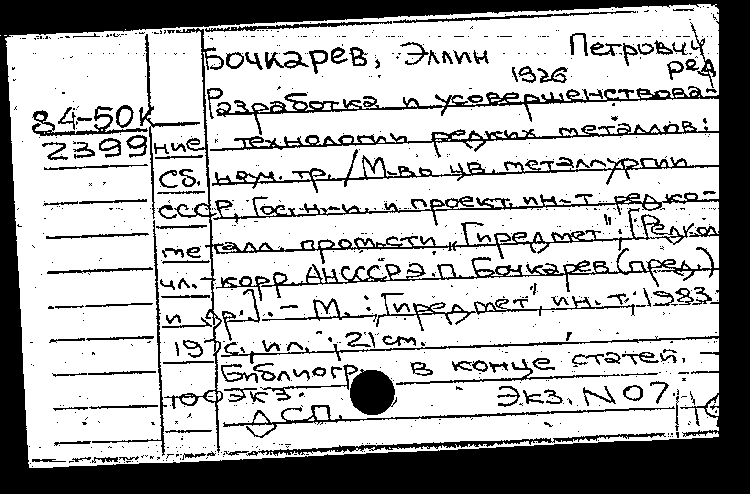 Бочкарев, Эллин Петрович
1926 ред
84-50к
2399
Разработка и усовершенствова-
ние технологии редких металлов:
Сб. науч. тр. / М-во цв. металлургии
СССР, Гос. н.-и. и проект. ин-т редко-
металл. пром-сти "Гиредмет"; [Редкол.
чл.-корр. АНСССР Э.П. Бочкарев (пред.)
и др.]. - М.: "Гиредмет", ин. т, 1983.
197с., ил.; 21 cm.
Библиогр. в конце статей.
100экз. Экз. N 07.
ДСП.